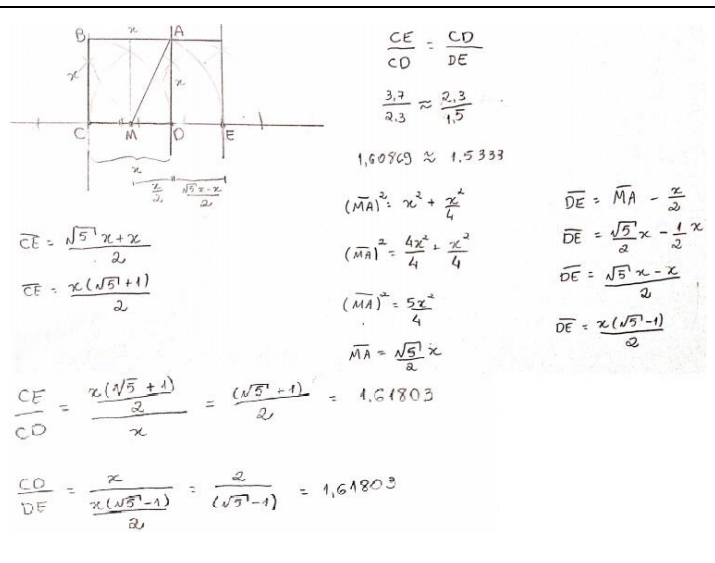 B x A
x x
C M D E
x
x/2 (√5 x - x)/2
CE/CD = CD/DE
3,7/2,3 ≈ 2,3/1,5
1,60869 ≈ 1,5333
(M̅A̅)² = x² + x²/4
(M̅A̅)² = 4x²/4 + x²/4
(M̅A̅)² = 5x²/4
M̅A̅ = √5/2 x
D̅E̅ = M̅A̅ - x/2
D̅E̅ = √5/2 x - 1/2 x
D̅E̅ = (√5 x - x)/2
D̅E̅ = x(√5 - 1)/2
C̅E̅ = (√5 x + x)/2
C̅E̅ = x(√5 + 1)/2
CE/CD = (x(√5 + 1)/2)/x = (√5 + 1)/2 = 1,61803
CD/DE = x/(x(√5 - 1)/2) = 2/(√5 - 1) = 1,61803